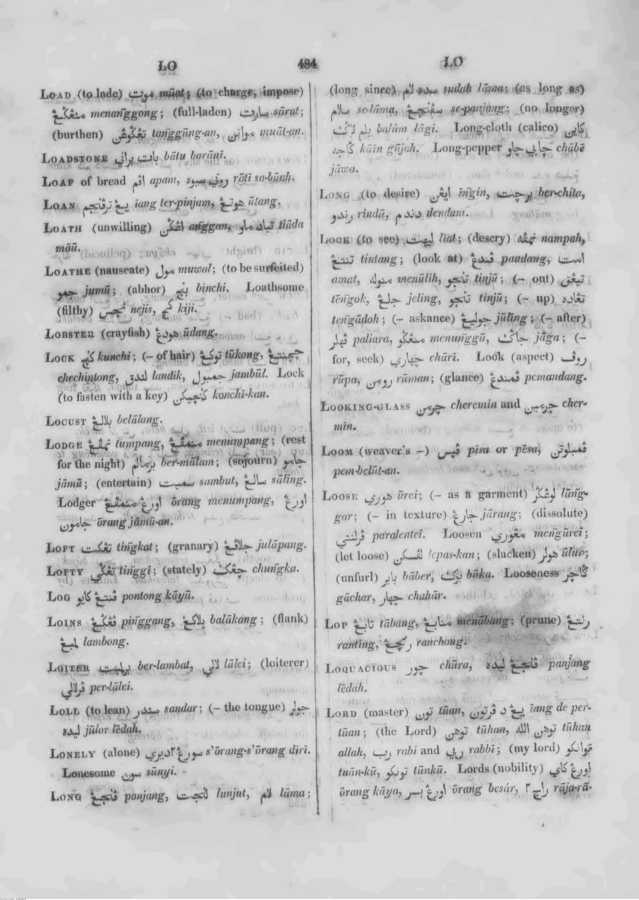 LO
484
LO
LOAD (to lade) موت mūat; (to charge, impose)
منڠݢوڠ menanġgong; (full-laden) سارت sārat;
(burthen) تڠݢوڠن tanġgūng-an, مواتن muāt-an.
LOADSTONE باتو براني bātu barāni.
LOAF of bread اڤم apam, روتي سبوه rōti sa-būah.
LOAN يڠ ترڤنجم iang ter-pinjam, هوتڠ ūtang.
LOATH (unwilling) اڠݢن anġgan, تياد ماو tiāda
māū.
LOATHE (nauseate) مول muwal; (to be surfeited)
جمو jamū; (abhor) بنچ binchi. Loathsome
(filthy) نجس nejis, كيجي kiji.
LOBSTER (crayfish) هودڠ ūdang.
LOCK كنچي kunchi; (– of hair) توكڠ tūkong,
chechintong, لندق landik, جمبول jambūl. Lock
(to fasten with a key) كنچيكن konchi-kan.
LOCUST بلالڠ belālang.
LODGE تمڤڠ tumpang, منمڤڠ menumpang; (rest
for the night) برمالم ber-mālam; (sojourn) جامو
jāmū; (entertain) سمبت sambut, سالڠ sāling.
Lodger اورڠ منمڤڠ ōrang menumpang, اورڠ
جامون ōrang jāmū-an.
LOFT تڠكت tinġkat; (granary) جلاڤڠ julāpang.
LOFTY تڠݢي tinġgi; (stately) چڠك chunġka.
LOG ڤنتڠ كايو pontong kāyū.
LOINS ڤڠݢڠ pinġgang, بلاكڠ balākang; (flank)
لمبڠ lambong.
LOITER برلمبت ber-lambat, لالي lālei; (loiterer)
ڤرلالي per-lālei.
LOLL (to lean) سندر sandar; (– the tongue) جولر
ليده jūlor līdah.
LONELY (alone) سورڠ٢ ديري s'ōrang-s'ōrang diri.
Lonesome سوني sūnyi.
LONG ڤنجڠ panjang, لنجت lunjut, لام lāma;
(long since) سده لام sudah lāma; (as long as)
سلام se-lāma, سڤنجڠ se-panjang; (no longer)
بلم لاݢي balūm lāgi. Long-cloth (calico) كاين
ݢاجه kāin gājah. Long-pepper چابي جاو chābē
jāwa.
LONG (to desire) ايڠن īnġin, برچنت ber-chita,
رندو rindū, دندم dendam.
LOOK (to see) ليهت līat; (descry) نمڤه nampah,
تنتڠ tintang; (look at) ڤندڠ pandang, امت
amat, منوله menūlih, تنجو tinjū; (– out) تيڠق
tēnġok, جلڠ jeling, تنجو tinjū; (– up) تڠاده
tenġādoh; (– askance) جوليڠ jūling; (– after)
ڤلير paliara, منڠݢو menunġgū, جاݢ jāga; (–
for, seek) چهاري chāri. Look (aspect) روڤ
rūpa, رومن rūman; (glance) ڤمندڠ pemandang.
LOOKING-GLASS چرمن cheremin and چرمين cher-
min.
LOOM (weaver's –) ڤيس pisa or pēsa, ڤمبلوتن
pem-belūt-an.
LOOSE هوري ūrei; (– as a garment) لوڠݢر lūnġ-
gar; (– in texture) جارڠ jārang; (dissolute)
ڤرلنتي paralentei. Loosen مڠوري menġūrei;
(let loose) لڤسكن lepas-kan; (slacken) هولر ūlur;
(unfurl) بابر bāber, بوك būka. Looseness ݢاچر
gāchar, چهار chahār.
LOP تابڠ tābang, منابڠ menābang; (prune) رنتڠ
ranting, رنچڠ ranchong.
LOQUACIOUS چور chūra, ڤنجڠ ليده panjang
līdah.
LORD (master) توان tūan, يڠ د ڤرتون īang de per-
tūan; (the Lord) توهن tūhan, توهن الله tūhan
allah, رب rabi and ربي rabbi; (my lord) توانكو
tuān-kū, تونكو tūnkū. Lords (nobility) اورڠ كاي
ōrang kāya, اورڠ بسر ōrang besár, راج٢ rāja-rā-